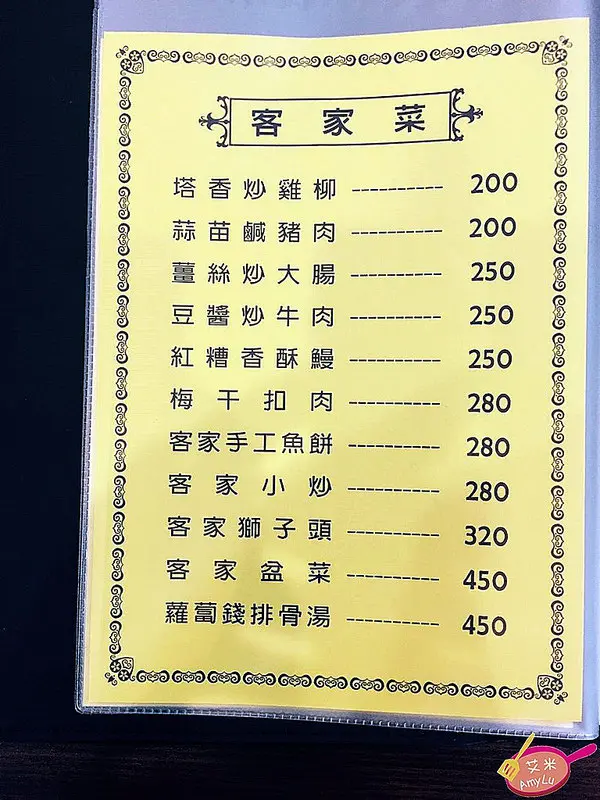 客家菜
塔香炒雞柳 ---------- 200
蒜苗鹹豬肉 ---------- 200
薑絲炒大腸 ---------- 250
豆醬炒牛肉 ---------- 250
紅糟香酥鰻 ---------- 250
梅干扣肉 ---------- 280
客家手工魚餅 ---------- 280
客家小炒 ---------- 280
客家獅子頭 ---------- 320
客家盆菜 ---------- 450
蘿蔔錢排骨湯 ---------- 450
艾米
AmyLu